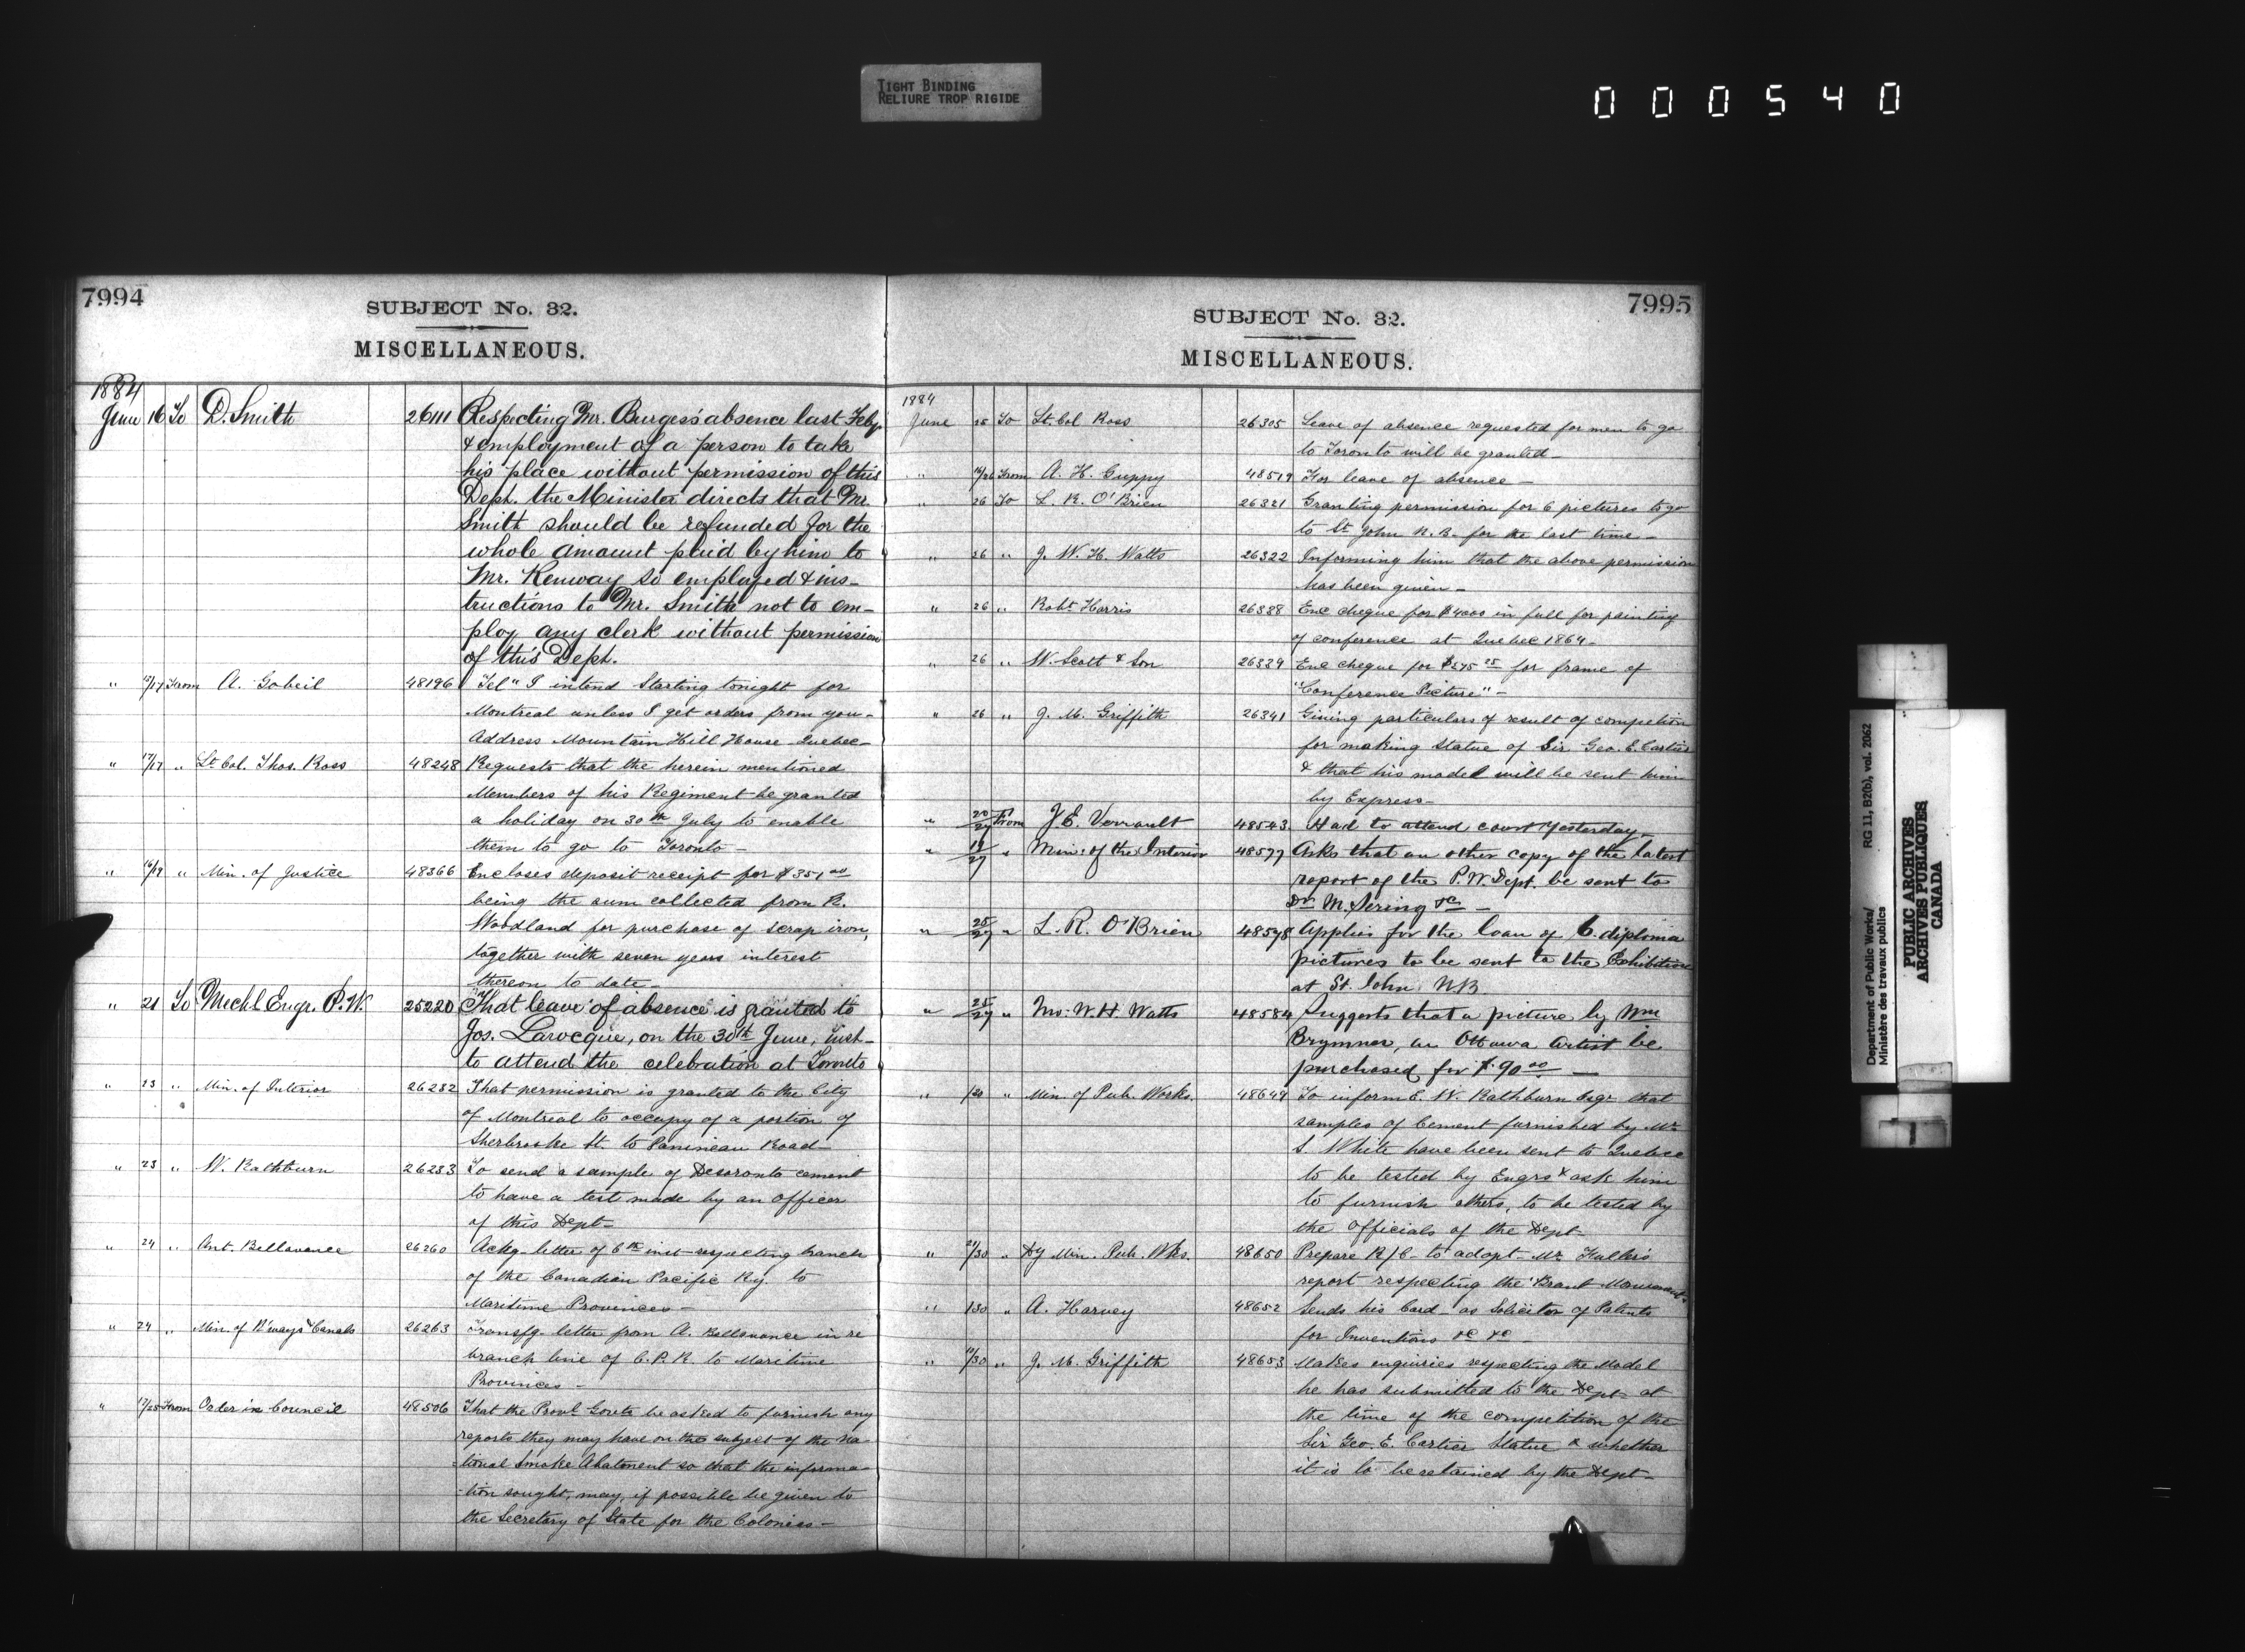 TIGHT BINDING
RELIURE TROP RIGIDE
000540
7994
SUBJECT No. 32.
MISCELLANEOUS.
1884
June 16 To D. Smith 26111 Respecting Mr. Burgess' absence last Feby.
& employment of a person to take
his place without permission of this
Dept. the Minister directs that Mr.
Smith should be refunded for the
whole amount paid by him to
Mr. Kenway so employed & ins-
tructions to Mr. Smith not to em-
ploy any clerk without permission
of this Dept.
" 17 From A. Gobeil 48196 Tel" I intend Starting tonight for
Montreal unless I get orders from you-
Address Mountain Hill House Quebec-
" 17/17 " Lt. Col. Thos. Ross 48248 Requests that the herein mentioned
Members of his Regiment be granted
a holiday on 30th July to enable
them to go to Toronto -
" 16/19 " Min. of Justice 48366 Encloses deposit receipt for $351.00
being the sum collected from R.
Woodland for purchase of scrap iron,
together with seven years interest
thereon to date-
" 21 To Mechl. Engr. P.W. 25220 That leave of absence is granted to
Jos. Larocque, on the 30th June, inst-
to attend the celebration at Toronto
" 23 " Min. of Interior 26232 That permission is granted to the City
of Montreal to occupy of a portion of
Sherbrooke St. to Papineau Road-
" 23 " W. Rathburn 26233 To send a sample of Deseronto cement
to have a test made by an officer
of this Dept-
" 24 " Ant. Bellavance 26260 Ackg. letter of 6th inst- respecting branch
of the Canadian Pacific Ry. to
Maritime Provinces-
" 24 " Min. of R'ways & Canals 26263 Transfg. letter from A. Bellavance in re
branch line of C.P.R. to Maritime
Provinces-
" 17/25 From Order in Council 48506 That the Provl Govts be asked to furnish any
reports they may have on the subject of the na-
-tional Smoke Abatement so that the informa-
-tion sought, may, if possible be given to
the Secretary of State for the Colonies-
7995
SUBJECT No. 32.
MISCELLANEOUS.
1884
June 25 To Lt. Col Ross 26305 Leave of absence requested for men to go
to Toronto will be granted-
" /26 From A. H. Guppy 48519 For leave of absence-
" 26 To L. R. O'Brien 26321 Granting permission for 6 pictures to go
to St. John N.B. for the last time-
" 26 " J. W. H. Watts 26322 Informing him that the above permission
has been given-
" 26 " Robt. Harris 26338 Enc cheque for $4000 in full for painting
of conference at Quebec 1864-
" 26 " W. Scott & Son 26339 Enc cheque for $575 25 for frame of
"Conference Picture"-
" 26 " J. M. Griffith 26341 Giving particulars of result of competion
for making statue of Sir Geo. E. Cartier
& that his model will be sent him
by Express-
" 20/27 From J. E. Verrault 48543 Had to attend court yesterday-
" 19/27 " Min: of the Interior 48577 Asks that an other copy of the latest
report of the P.W. Dept. be sent to
Dr. M. Sering &c -
" 25/27 " L. R. O'Brien 48578 Applies for the loan of 6. diploma
pictures to be sent to the Exhibition
at St. John N.B.
" 25/27 " W. H. Watts 48584 Suggests that a picture by Wm
Brymner, an Ottawa artist be
purchased for $90.00 -
" /28 " Min. of Pub. Works. 48649 To inform E. W. Rathburn Esqr that
samples of cement furnished by Mr
S. White have been sent to Quebec
to be tested by Engrs & ask him
to furnish others, to be tested by
the Officials of the Dept-
" 21/30 " Dy Min. Pub. Wks. 48650 Prepare R/C- to adopt Mr. Fuller's
report respecting the "Brant Monument"
" /30 " A. Harvey 48652 Sends his Card- as Solicitor of Patents
for Inventions &c &c -
" /30 " J. M. Griffith 48653 Makes enquiries respecting the Model
he has submitted to the Dept- at
the time of the competition of the
Sir Geo. E. Cartier Statue & whether
it is to be retained by the Dept-
Department of Public Works/ RG 11, B2(b), vol. 2062
Ministère des travaux publics
PUBLIC ARCHIVES
ARCHIVES PUBLIQUES
CANADA